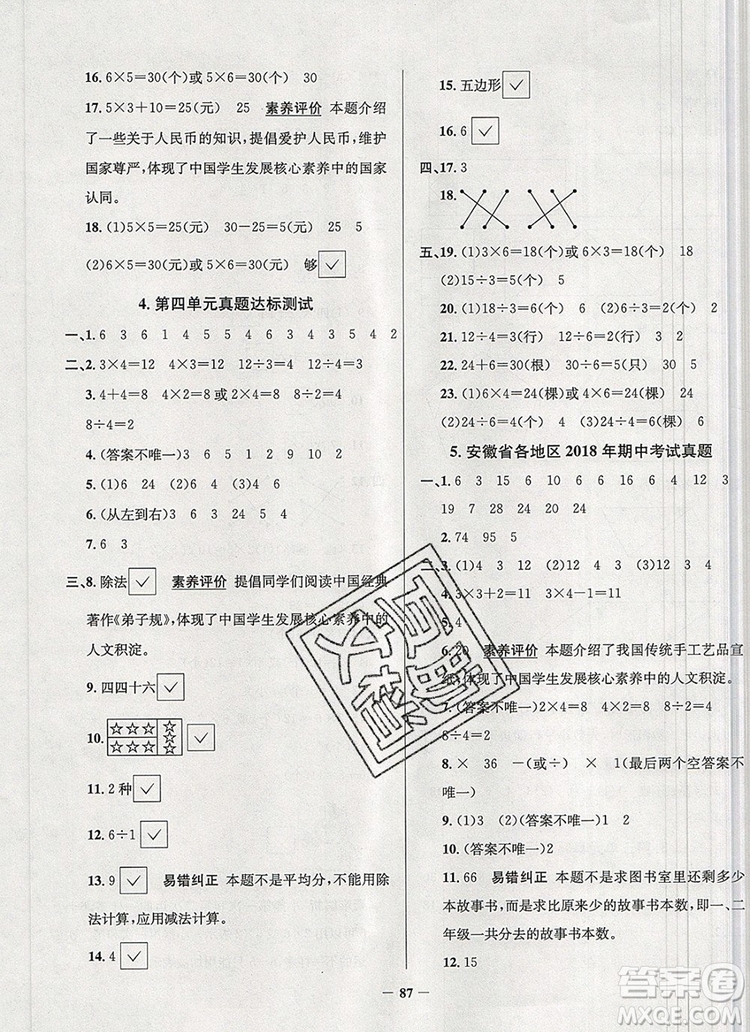 16. 6×5=30(个)或 5×6=30(个) 30
17. 5×3+10=25(元) 25 素养评价 本题介绍
了一些关于人民币的知识，提倡爱护人民币，维护
国家尊严，体现了中国学生发展核心素养中的国家
认同。
18. (1)5×5=25(元) 30-25=5(元) 25 5
(2)6×5=30(元) 30=30 够 ✓
4. 第四单元真题达标测试
一、1. 6 3 6 1 4 5 5 4 6 3 4 3 5 4 2
二、2. 3×4=12 4×3=12 12÷3=4 12÷4=3
3. 4+4=8 4×2=8 或 2×4=8 8÷2=4
8÷4=2
4. (答案不唯一)3 6 5 1 2 9 10 10
5. 6 12 24 4 8 16
6. (从左到右)3 6 3 24 5 4
7. 6 3
三、8. 除法 ✓ 素养评价 提倡同学们阅读中国经典
著作《弟子规》，体现了中国学生发展核心素养中的
人文积淀。
9. 四四十六 ✓
10. ☆☆☆☆ ☆☆☆☆ ✓
11. 2 种 ✓
12. 6÷1 ✓
13. 9 ✓ 易错纠正 本题不是平均分，不能用除
法计算，应用减法计算。
14. 4 ✓
15. 五边形 ✓
16. 6 ✓
四、17. 3
18.
五、19. (1)3×6=18(个)或 6×3=18(个) 18
(2)15÷3=5(个) 5
20. (1)18÷3=6(个) 6 (2)18÷6=3(个) 3
21. 12÷4=3(行) 12÷6=2(行) 3 2
22. 24+6=30(根) 30÷6=5(只) 30 5
23. (1)6×4=24(棵)或 4×6=24(棵) 24
(2)24÷4=6(个) 6
5. 安徽省各地区 2018 年期中考试真题
一、1. 6 3 15 10 6 30 12 4 8 12 3
19 7 28 24 28 4
2. 74 95 5
3. (1)3 4 12 (2)4 3 12 (3)12 4 3
4. 3×3+2=11 3×4-1=11
5. 4
6. 20 素养评价 本题介绍了我国传统手工艺品宣
纸，体现了中国学生发展核心素养中的人文积淀。
7. (答案不唯一)2×4=8 4×2=8 8÷2=4
8÷4=2
8. × 36 -(或÷) × × (最后两个空答案不
唯一)
9. (1)3 (2)(答案不唯一)1 2
10. (答案不唯一)2
11. 66 易错纠正 本题是求图书室里还剩多少
本故事书，而不是求比原来少的故事书本数，即一、二
年级一共分去的故事书本数。
12. 15
87
直助
文档
答案圈
MXQE.COM